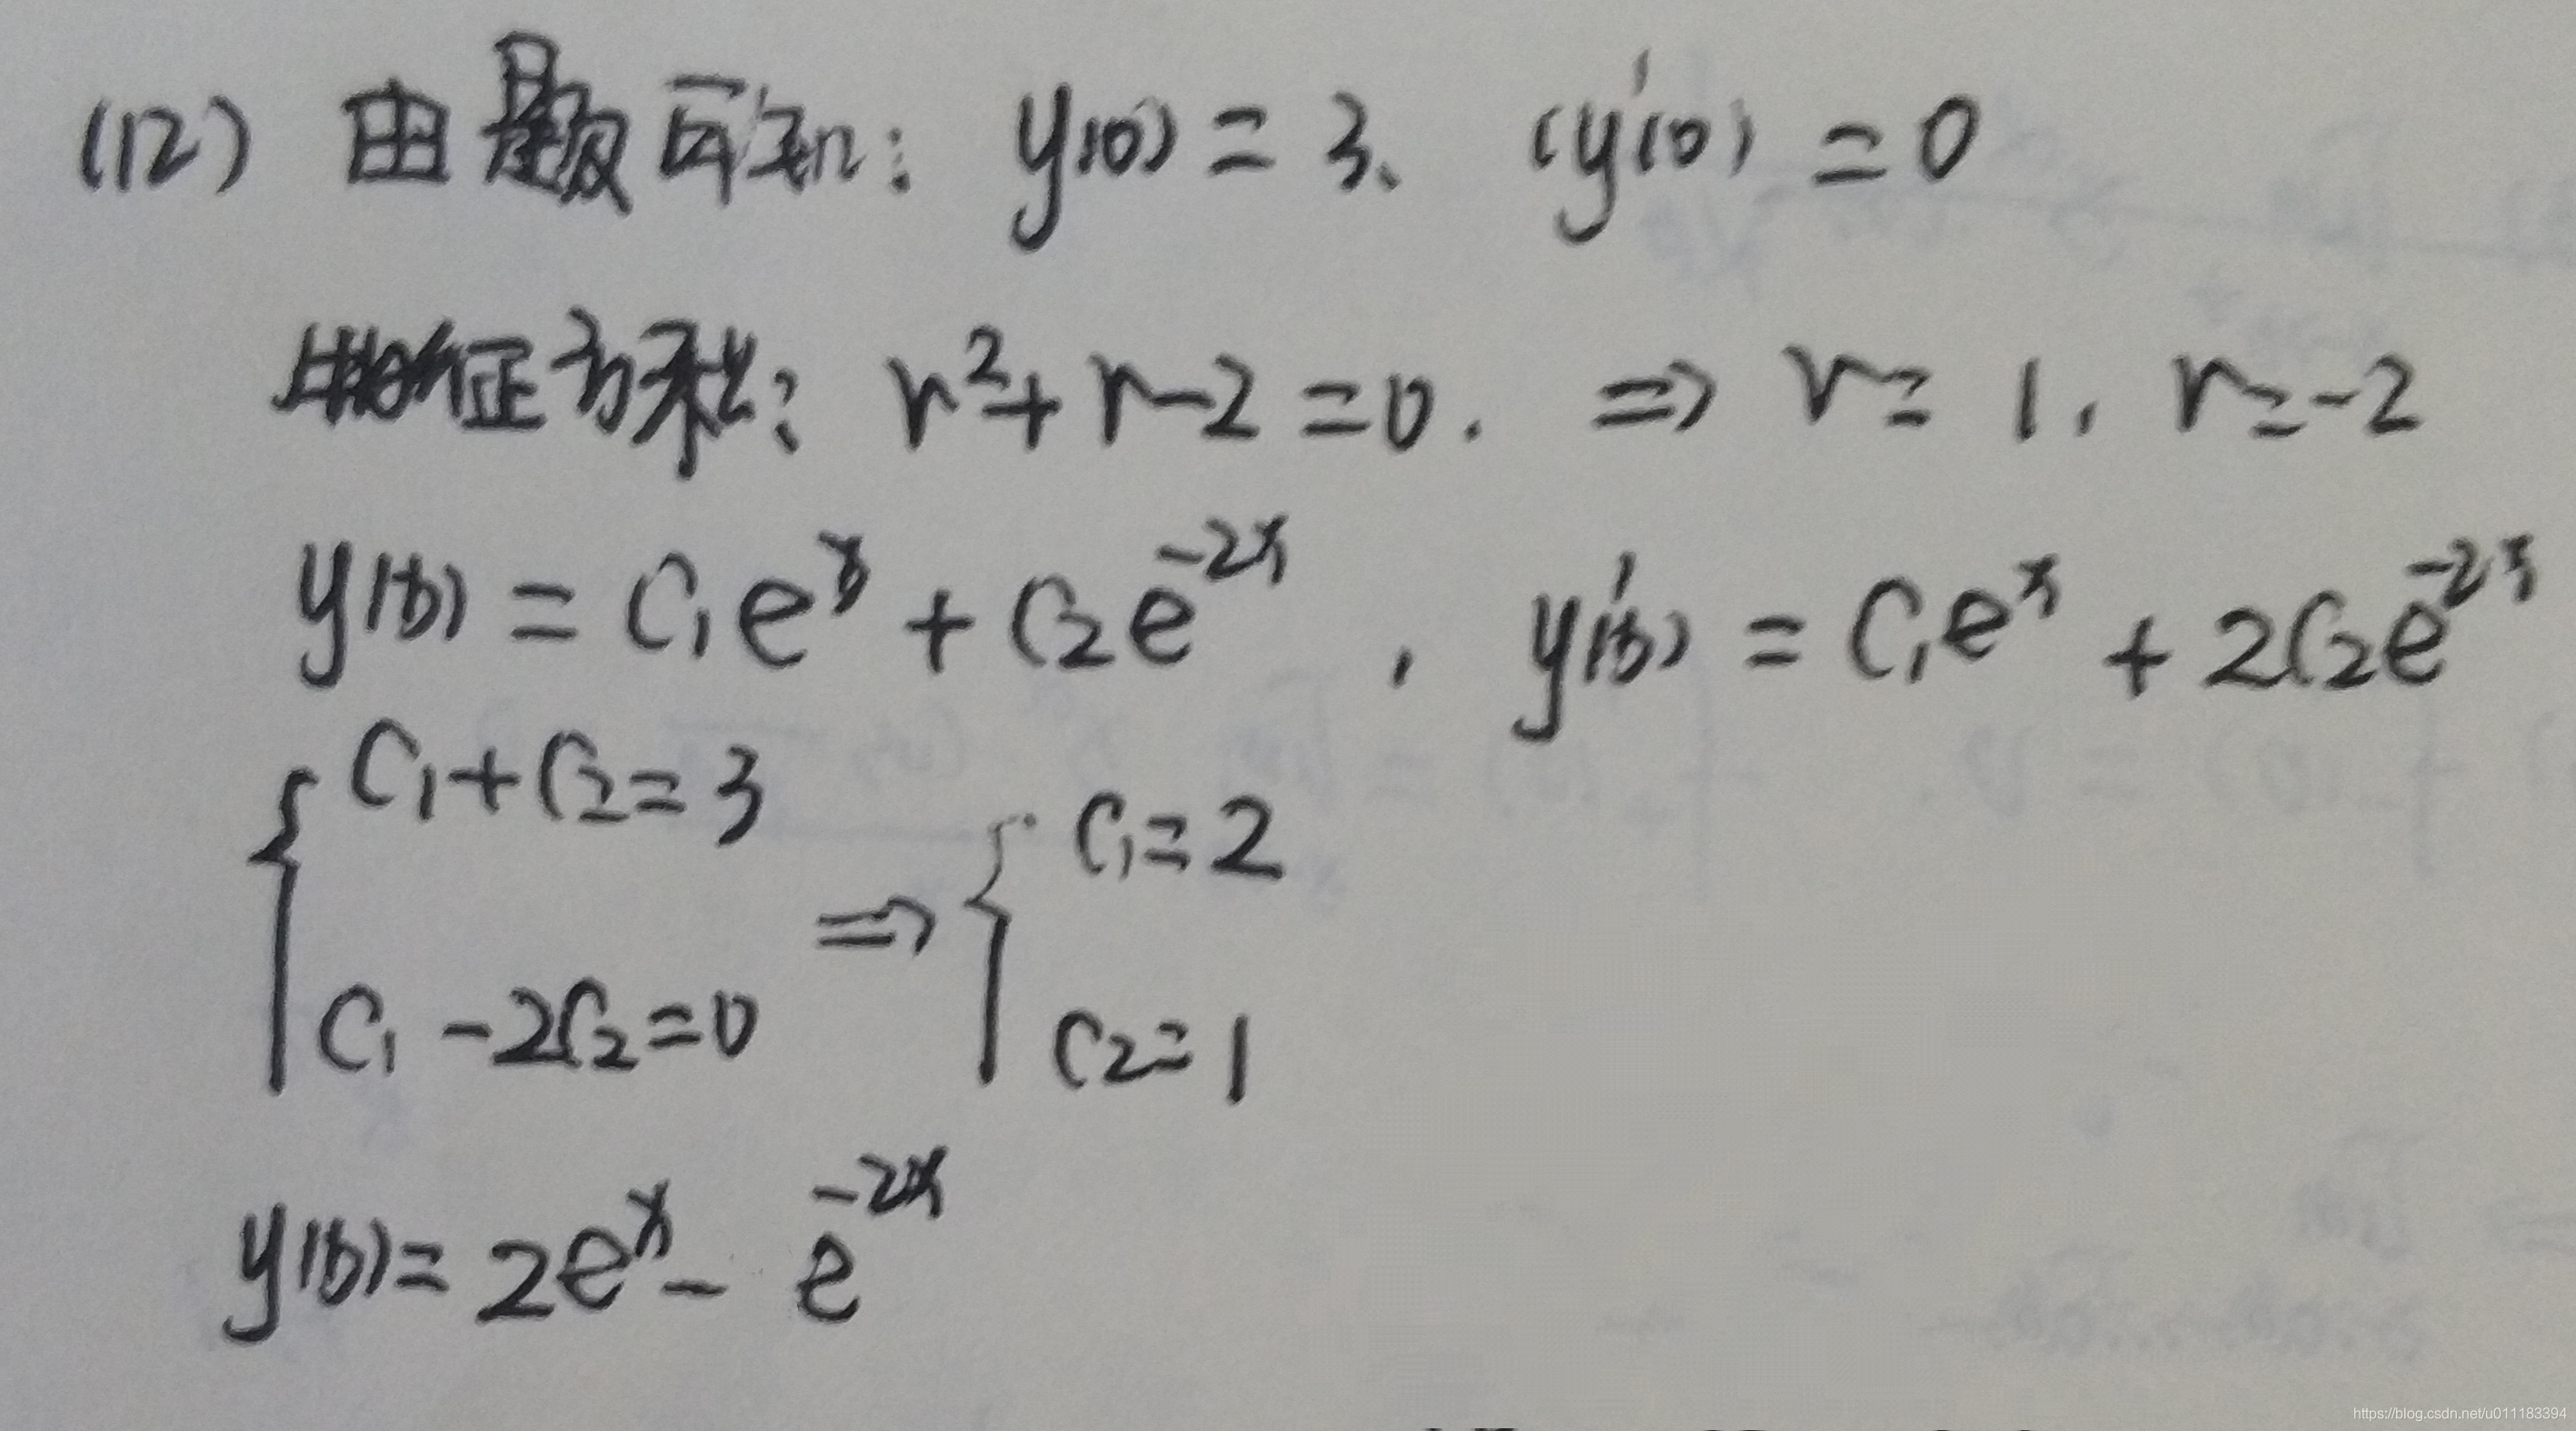 (12) 由题可知: y(0) = 3、 (y'(0) = 0
特征方程: r²+r-2=0. ⇒ r= 1, r=-2
y(x) = C₁eˣ + C₂e⁻²ˣ , y'(x) = C₁eˣ + 2C₂e⁻²ˣ
{ C₁+C₂=3 ⇒ { C₁=2
C₁-2C₂=0 C₂=1
y(x)= 2eˣ- e⁻²ˣ
https://blog.csdn.net/u011183394